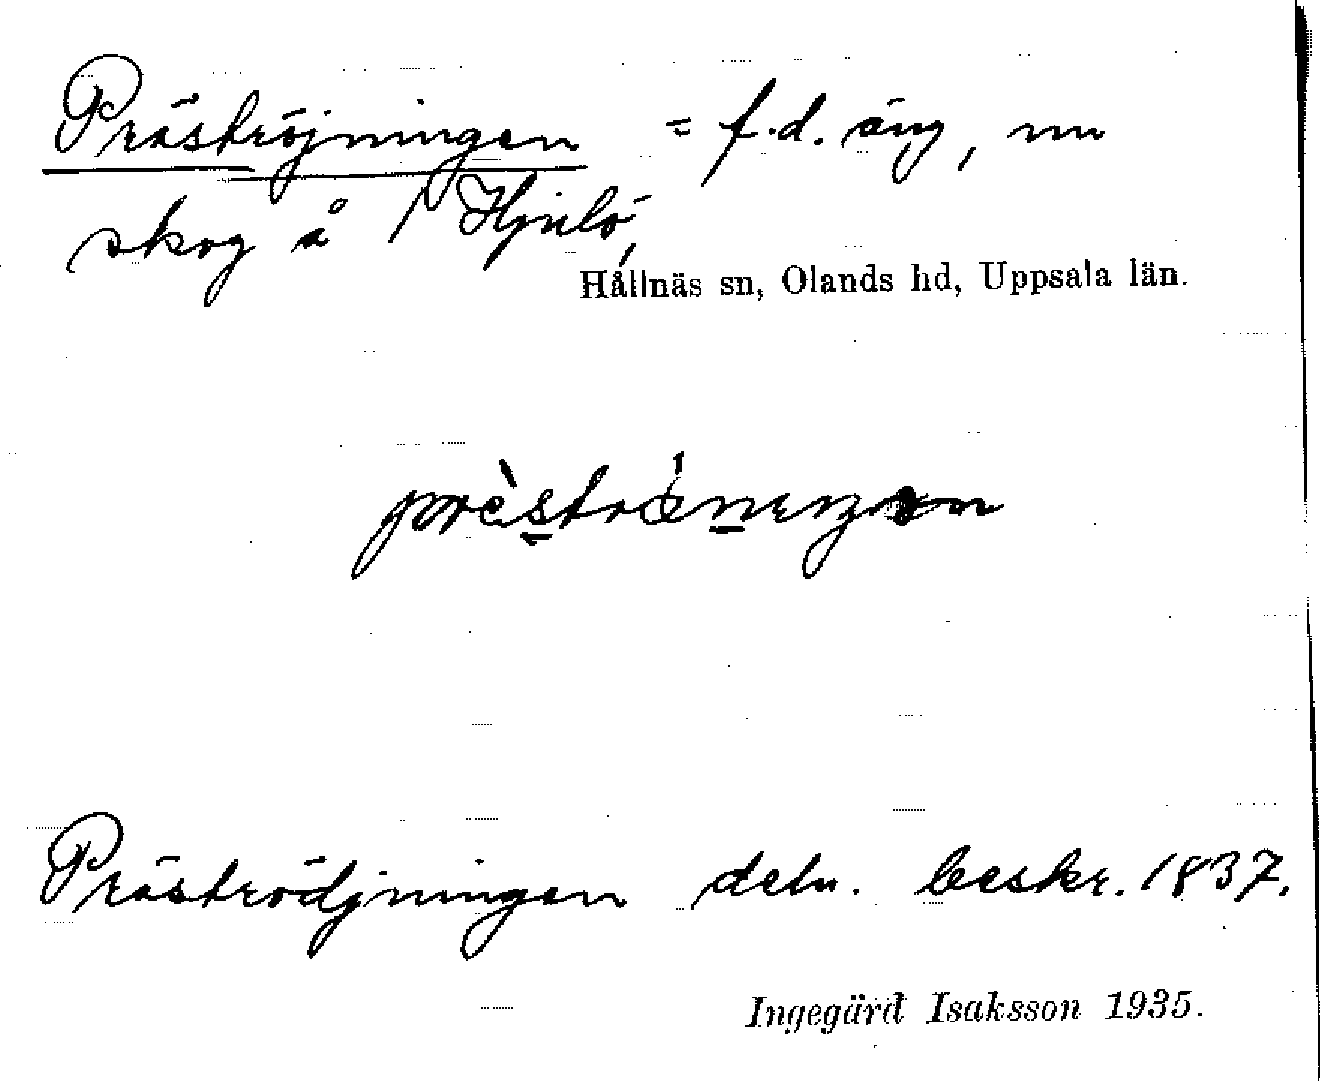 Präströjningen = f.d. äng, nu
skog å Hjälö,
Hållnäs sn, Olands hd, Uppsala län.
Präströdjningen deln. beskr. 1837.
Ingegärd Isaksson 1935.